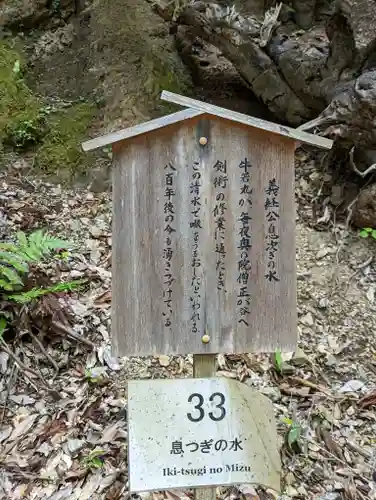 義経公息次ぎの水
牛若丸が毎夜奥の院僧正が谷へ
剣術の修業に通ったとき、
この清水で喉をうるおしたといわれる。
八百年後の今も湧きつづけている。
33
息つぎの水
Iki-tsugi no Mizu